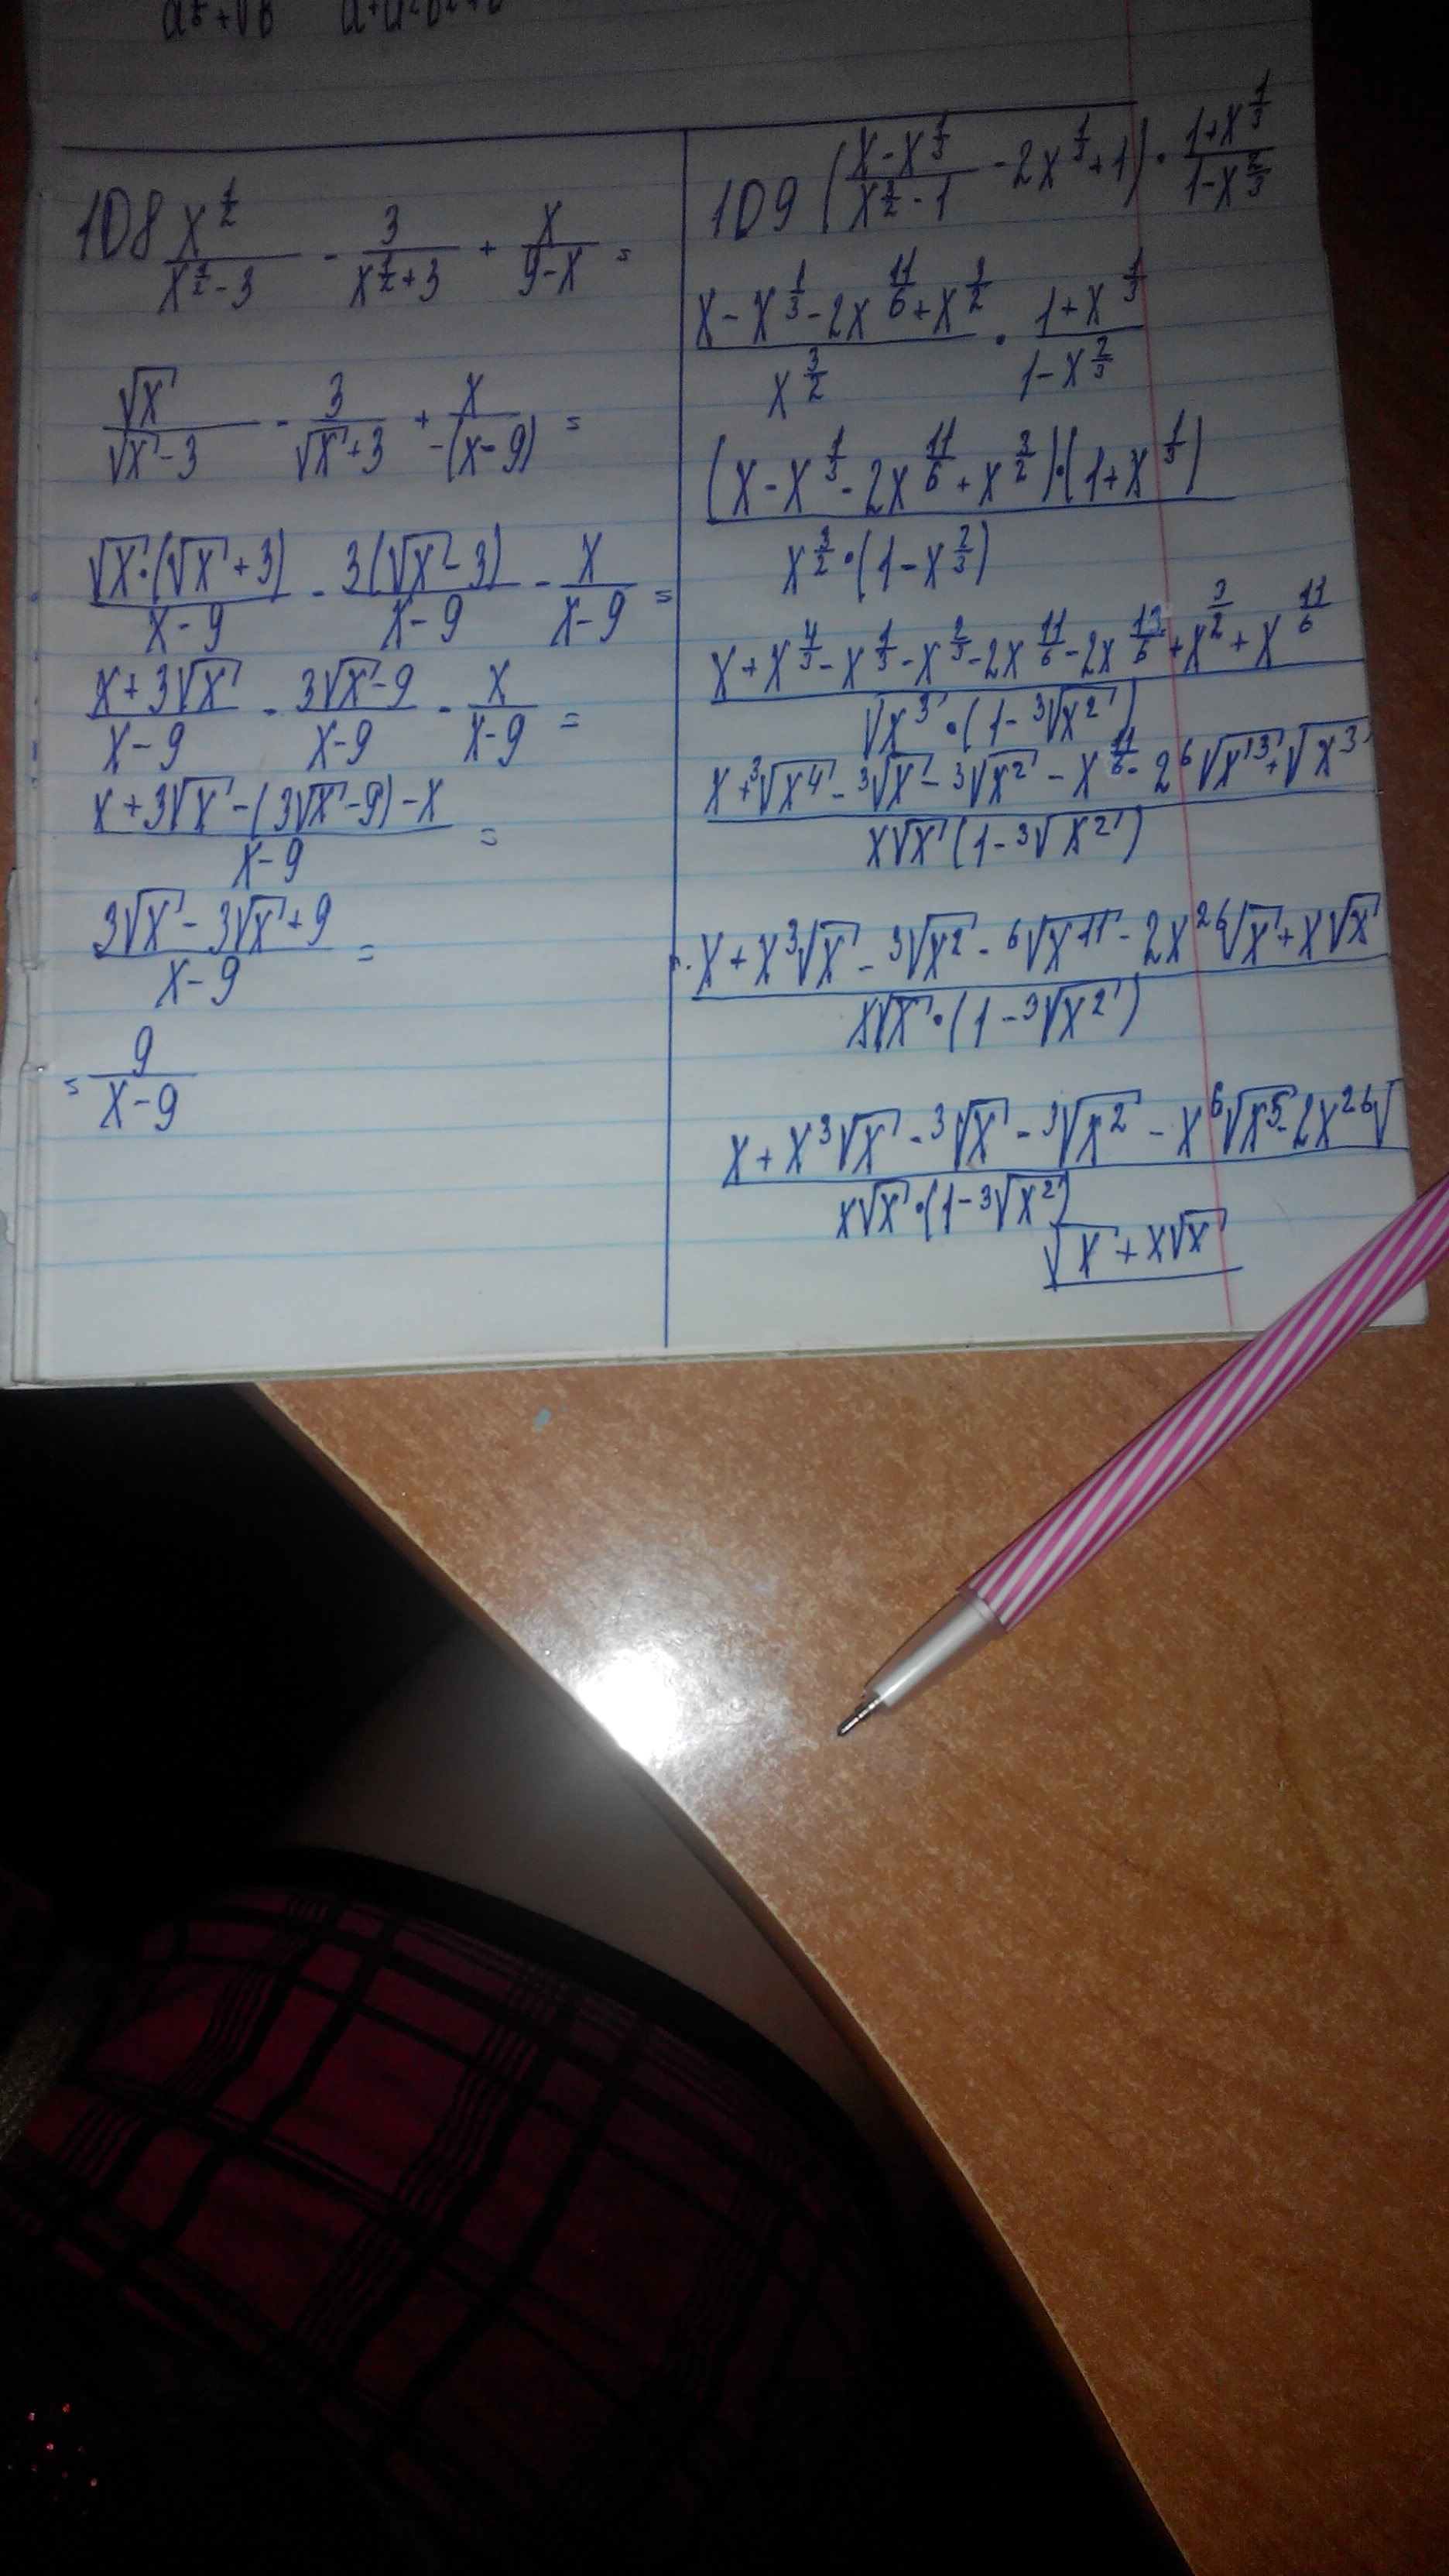 108 x^{1/2}/(x^{1/2}-3) - 3/(x^{1/2}+3) + x/(9-x) =
√x/(√x-3) - 3/(√x+3) + x/(-(x-9)) =
√x·(√x+3)/(x-9) - 3(√x-3)/(x-9) - x/(x-9) =
(x+3√x)/(x-9) - (3√x-9)/(x-9) - x/(x-9) =
(x+3√x-(3√x-9)-x)/(x-9) =
(3√x-3√x+9)/(x-9) =
= 9/(x-9)
109 ((x-x^{1/3})/(x^{3/2}-1) - 2x^{1/3}+1)·(1+x^{1/3})/(1-x^{2/3})
(x-x^{1/3}-2x^{11/6}+x^{3/2})/x^{3/2} · (1+x^{1/3})/(1-x^{2/3})
(x-x^{1/3}-2x^{11/6}+x^{3/2})·(1+x^{1/3})/(x^{3/2}·(1-x^{2/3}))
(x+x^{4/3}-x^{1/3}-x^{2/3}-2x^{11/6}-2x^{13/6}+x^{3/2}+x^{11/6})/(√x³·(1-³√x²))
(x+³√x⁴-³√x-³√x²-x^{11/6}-2⁶√x¹³+√x³)/(x√x(1-³√x²))
(x+x³√x-³√x²-⁶√x¹¹-2x²⁶√x+x√x)/(x√x·(1-³√x²))
(x+x³√x-³√x-³√x²-x⁶√x⁵-2x²⁶√)/(x√x·(1-³√x²))
√x+x√x